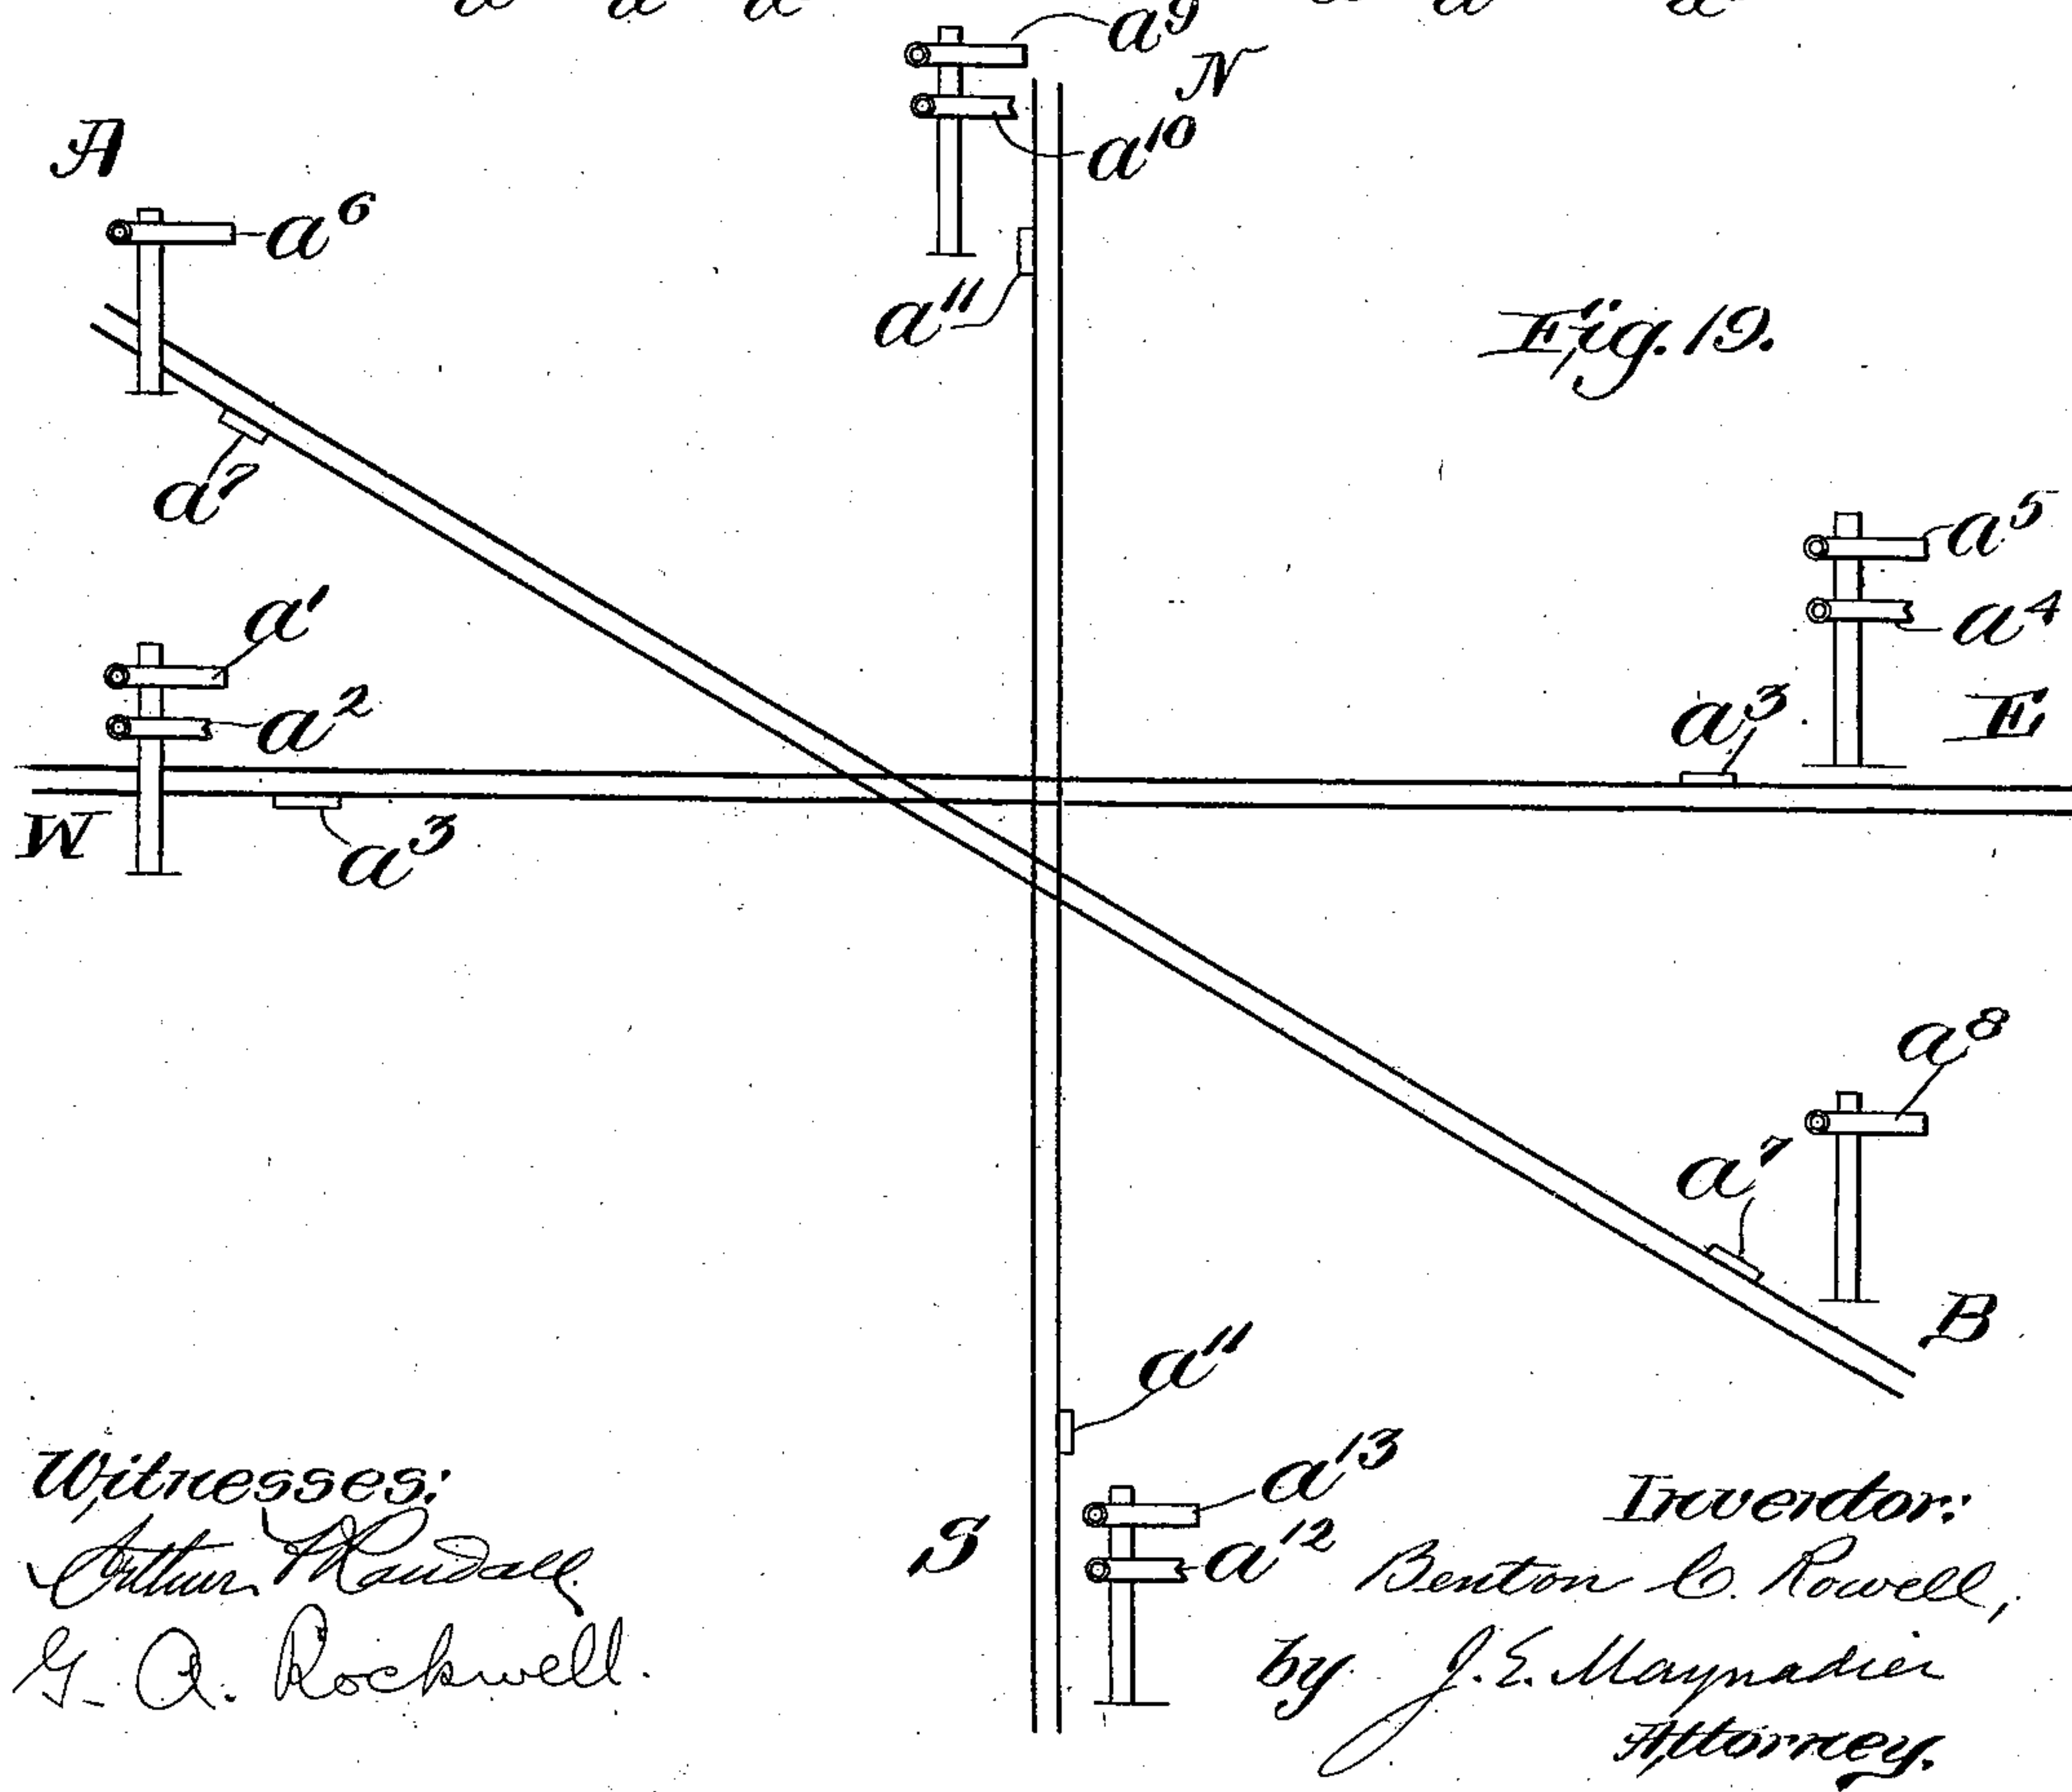 a⁹
N
a¹⁰
A
a⁶
a¹¹
Fig. 19.
a⁷
a⁵
a¹
a⁴
a²
a³
E
W
a³
a⁸
a⁷
B
a¹¹
a¹³
S
a¹²
Witnesses:
Arthur Randall.
G. A. Rockwell.
Inventor:
Benton C. Rowell,
by J. E. Maynadier
Attorney.